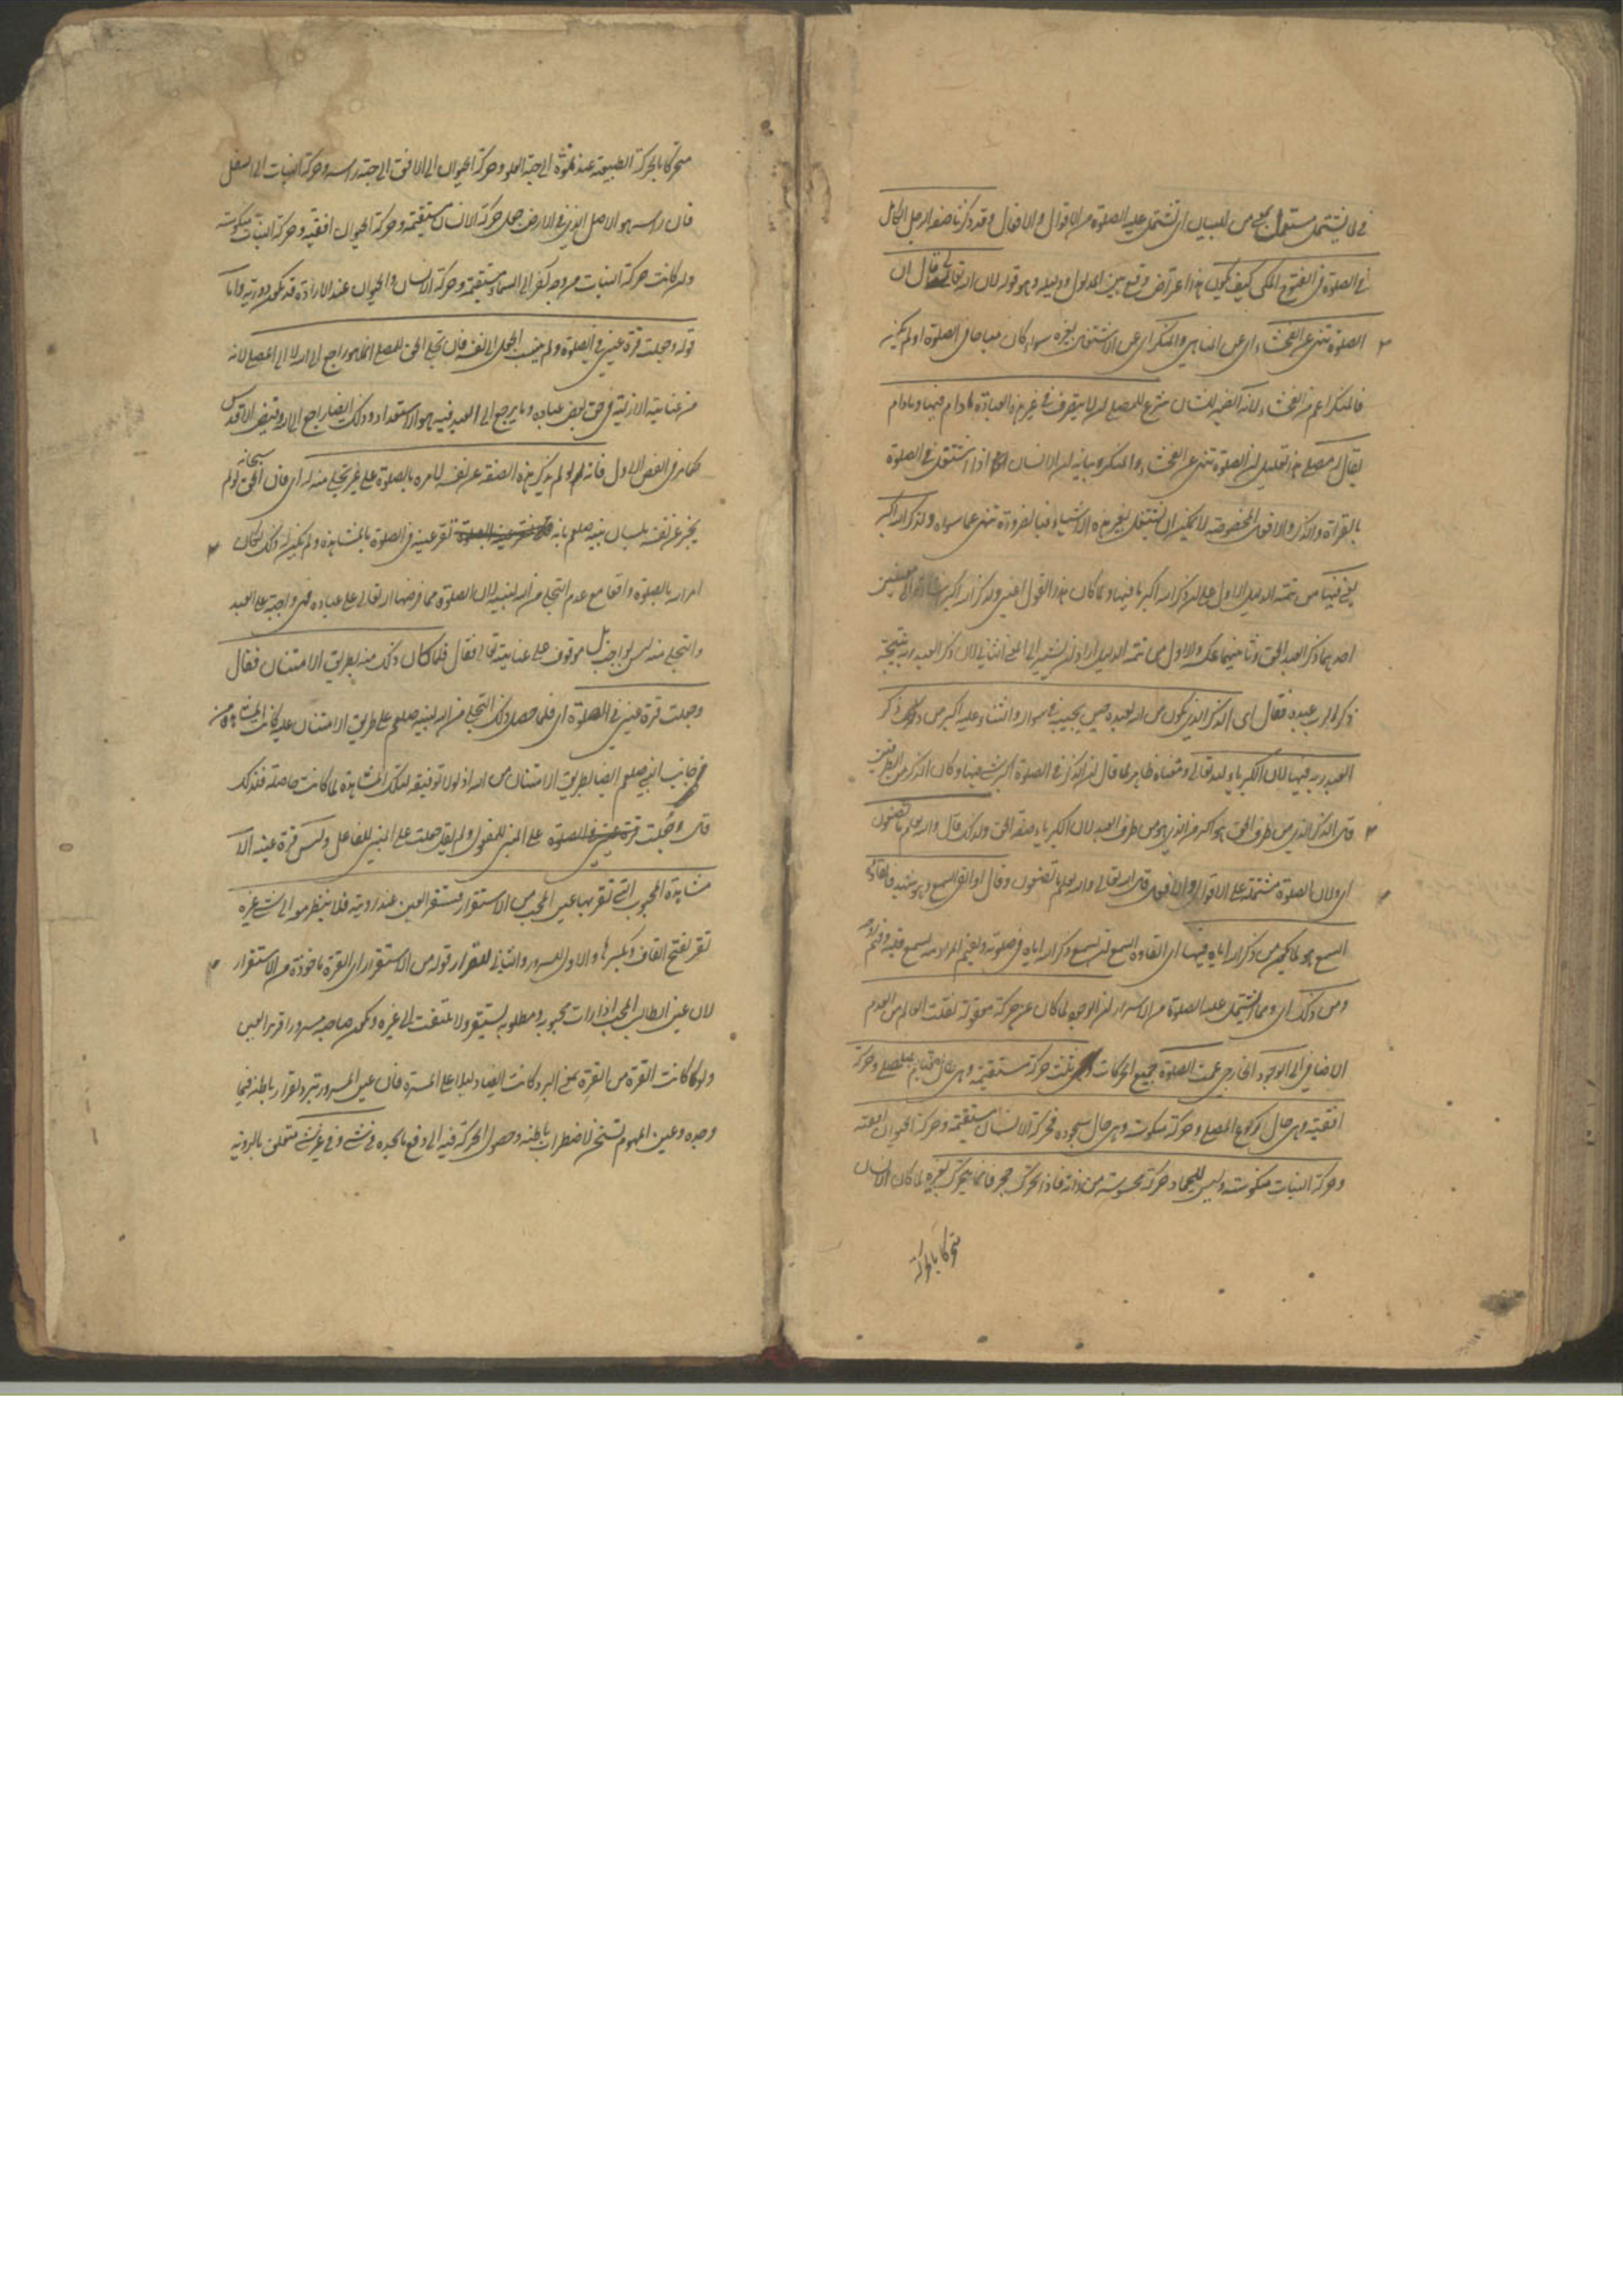 في لما يشتمل مستعمل بمعنى من للبيان اى تشتمل عليه الصلوة من الاقوال والافعال وقد ذكرنا صفة الرجل الكامل
في الصلوة في الفتوح المكى كيف يكون هذا اعتراض وقع بين المدلول ودليله وهو قوله لان الله تعالى يقال ان
الصلوة تنهى عن الفحشاء اى عن المناهى والمنكر اى عن الاشتغال بغيره سواء كان مباحا في الصلوة او لم يكن
فالمنكر اعم من الفحشاء لانه الضمير للشان شرع للمصلى ان لا يتصرف في غير هذه العبادة مادام فيها ومادام
يقال له مصلى هذا تعليل ان الصلوة تنهى عن الفحشاء والمنكر وبيانه ان الانسان اذا اشتغل في الصلوة
بالقراءة والذكر والافعال المخصوصة لا يمكن ان يشتغل بغير هذه الاشياء فبالضرورة تنهى عما سواه ولذكر الله اكبر
يعني فيها من تتمة الدليل الاول على ان ذكر الله اكبر ما فيها ولما كان هذا القول اعنى ولذكر الله اكبر
احدهما ذكر العبد الحق وثانيهما عكسه والاول من تتمة الدليل اراد ان يشير الى المعنى الثانى لان ذكر العبد ربه نتيجة
ذكر الرب عبده فقال اى الذكر الذى يكون من الله لعبده حين يجيبه في سواله والثناء عليه اكبر من ذكر
العبد ربه فيها لان الكبرياء لله تعالى ومعناه ظاهر لما قال ان الذكر في الصلوة اكبر شئ فيها وكان الذكر من الطرفين
قال الذكر الذى من طرف الحق هو اكبر من الذى هو من طرف العبد لان الكبرياء صفة الحق ولذلك قال والله يعلم ما تصنعون
اى ولان الصلوة مشتملة على الاقوال والافعال قال الله تعالى والله يعلم ما تصنعون وقال او القى السمع وهو شهيد فالقاء
السمع هو لما يكون من ذكر الله اياه فيها اى القاؤه السمع لان يسمع ذكر الله اياه في صلوته ويفهم المراد منه بسمع قلبه وفهم روحه
ومن ذلك اى ومما يشتمل عليه الصلوة من الاسرار ان الوجود لما كان عن حركة معقولة نقلت العالم من العدم
الاضافى الى الوجود الخارجى عمت الصلوة جميع الحركات وهى ثلث حركة مستقيمة وهى حال قيام المصلى وحركة
افقية وهى حال ركوع المصلى وحركة منكوسة وهى حال سجوده فحركة الانسان مستقيمة وحركة الحيوان افقية
وحركة النبات منكوسة وليس للجماد حركة محسوسة من ذاته فاذا تحرك حجر فانما يتحرك بغيره لما كان الانسان
متحركا بالحركة
متحركا بالحركة الطبيعية عند نموه الى جهة العلو وحركة الحيوان الى الافق الى جهة رأسه وحركة النبات الى السفل
فان رأسه هو الاصل الذى في الارض جعل حركة الانسان مستقيمة وحركة الحيوان افقية وحركة النبات منكوسة
وان كانت حركة النبات من وجه آخر الى السماء مستقيمة وحركة الانسان والحيوان عند الارادة قد تكون دورية واما
قوله وجعلت قرة عينى في الصلوة ولم ينسب الجعل الى نفسه فان تجلى الحق للمصلى انما هو راجع اليه لا الى المصلى لانه
من عنايته الازلية في حق بعض عباده وما يرجع الى العبد فيه هو الاستعداد وذلك ايضا راجع اليه وفيضه الاقدس
كما مر في الفص الاول فانه لو لم يذكر هذه الصفة عن نفسه لامره بالصلوة على غير تجلى منه له اى فان الحق سبحانه لو لم
يخبر عن نفسه بلسان نبيه صلعم بانه تقر عينه في الصلوة بالمشاهدة ولم يكن له ذلك لكان
امر الله بالصلوة واقعا مع عدم التجلى من الله لنبيه لان الصلوة مما فرضها الله تعالى على عباده فهى واجبة على العبد
والتجلى منه ليس بواجب بل موقوف على عنايته تعالى فقال فلما كان ذلك منه بطريق الامتنان فقال
وجعلت قرة عينى في الصلوة اى فلما حصل ذلك التجلى من الله لنبيه صلعم على طريق الامتنان عليه كانت المشاهدة من
جانب النبى صلعم ايضا بطريق الامتنان من الله اذ لولا توفيقه لتلك المشاهدة لما كانت حاصلة فلذلك
قال وجعلت قرة عينى في الصلوة على المبنى للمفعول ولم يقل جعلت على المبنى للفاعل وليس قرة عينه الا
مشاهدة المحبوب التى تقر بها عين المحب من الاستقرار فتستقر العين عند رؤيته فلا ينظر معه الى شئ غيره
تقر بفتح القاف وكسرها والاول للسرور والثانى للقرار قوله من الاستقرار اى القرة ماخوذة من الاستقرار
لان عين الطالب المحب اذا رات محبوبه ومطلوبه يستقر ولا يلتفت الى غيره ويكون صاحبه مسرورا قرير العين
ولو كانت القرة من القر بمعنى البرد كانت ايضا دليلا على المسرة فان عين المسرور تبرد لقرار باطنه فيما
وجده وعين المهموم تسخن لاضطراب باطنه وحصول الحركة فيه الى دفع ما يجده في شئ وفي غير شئ متعلق بالرؤية